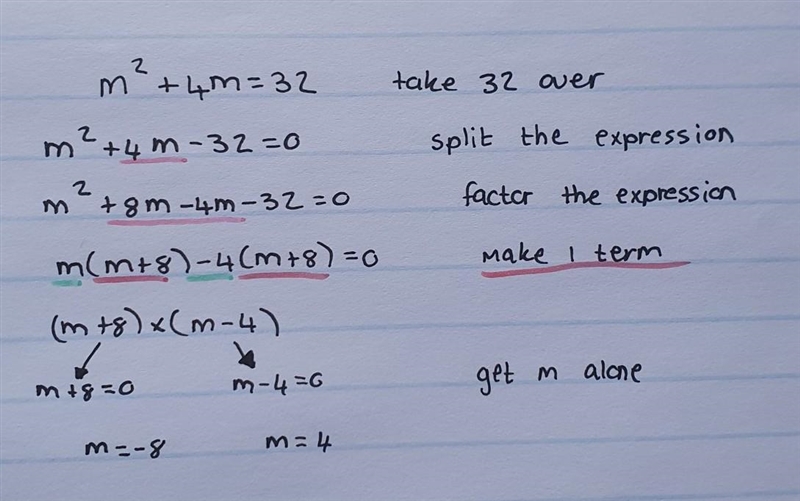 m² + 4m = 32 take 32 over
m² + 4m - 32 = 0 split the expression
m² + 8m - 4m - 32 = 0 factor the expression
m(m+8) - 4(m+8) = 0 make 1 term
(m+8) × (m-4)
m+8=0 m-4=0 get m alone
m=-8 m=4